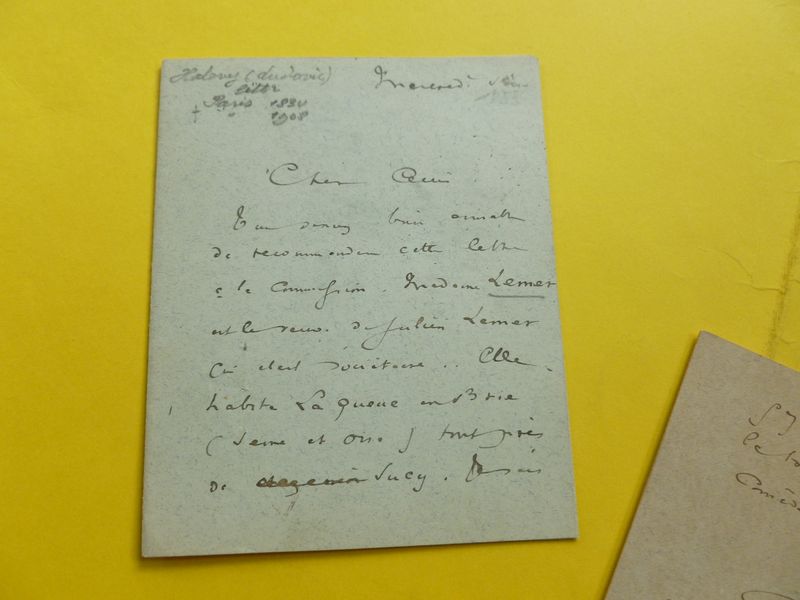 Halevy (Ludovic)
littr
Paris 1834
+ " 1908
Mercredi soir
Cher Ami
Tu serais bien aimable
de recommander cette lettre
à la Commission. Madame Lemer
est la veuve de Julien Lemer
qui était Sociétaire.. Elle
habite La Queue en Brie
(Seine et Oise) tout près
de Sucy. Je suis
le
Coméd